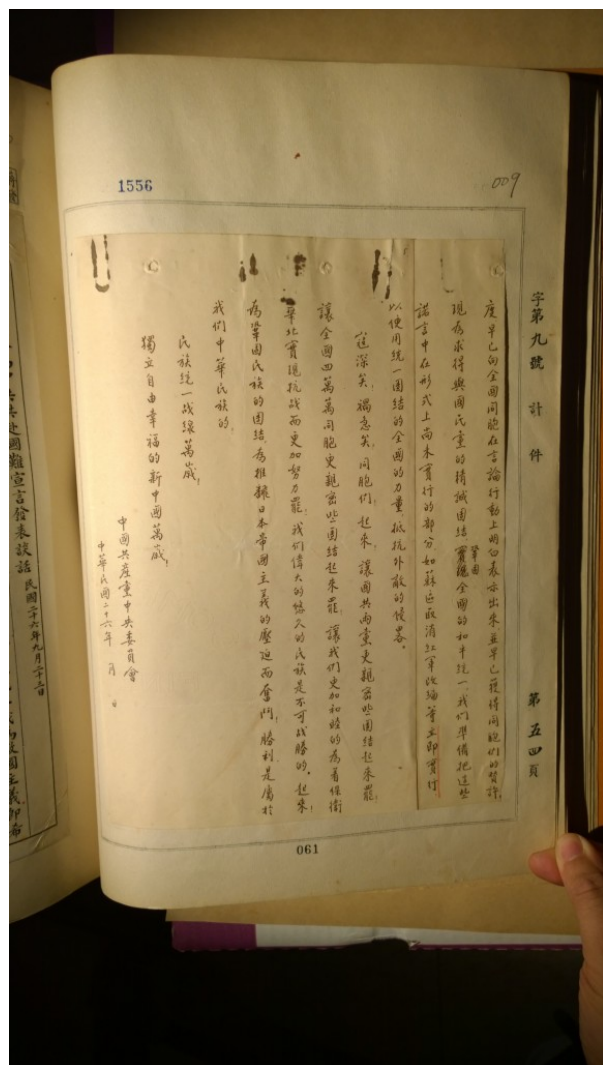 1556
009
字第九號 計 件
第五四頁
度早已向全國同胞在言論行動上明白表示出來、並早已獲得同胞們的贊許。
現為求得與國民黨的精誠團結 鞏固 全國的和平統一、我們準備把這些
諾言中在形式上尚未實行的部分、如蘇區取消、紅軍改編等、立即實行
以使用統一團結的全國的力量、抵抗外敵的侵略。
深矣、禍急矣、同胞們、起來、讓國共兩黨更親密些團結起來罷！
讓全國四萬萬同胞更親密些團結起來罷、讓我們更加和睦的為着保衛
華北實現抗战而更加努力罷、我們偉大的悠久的民族是不可战勝的。起來、
為鞏固民族的團結、為推翻日本帝國主義的壓迫而奮鬥、勝利是屬於
我們中華民族的、
民族統一战線萬歲、
獨立自由幸福的新中國萬歲、
中國共產黨中央委員會
中華民國二十六年 月 日
061
共赴國難宣言發表談話 民國二十六年九月二十三日